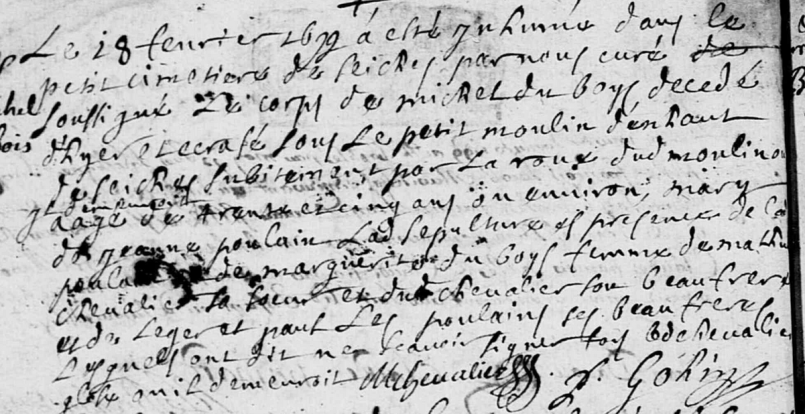 Le 18 fevrier 1699 a esté jnhumé dans le
petit cimetiere de seiches par nous curé de
soussigné Le corps de michel du boys decedé
d'hyer et ecrasé sous Le petit moulin d'enhaut
de seiches subitement par La roue dud moulin
aagé de trente et cinq ans ou environ, mary
de jeanne poulain Lad sepulture es presence de la
poulain de marguerite du boys femme de mathu
chevalier sa soeur et dud chevalier son beaufrere
et de Leger et paul Les poulains ses beaufreres
Lesquels ont dit ne scavoir signer fors led chevalier
qu'il demeuroit MChevalier
Gohin